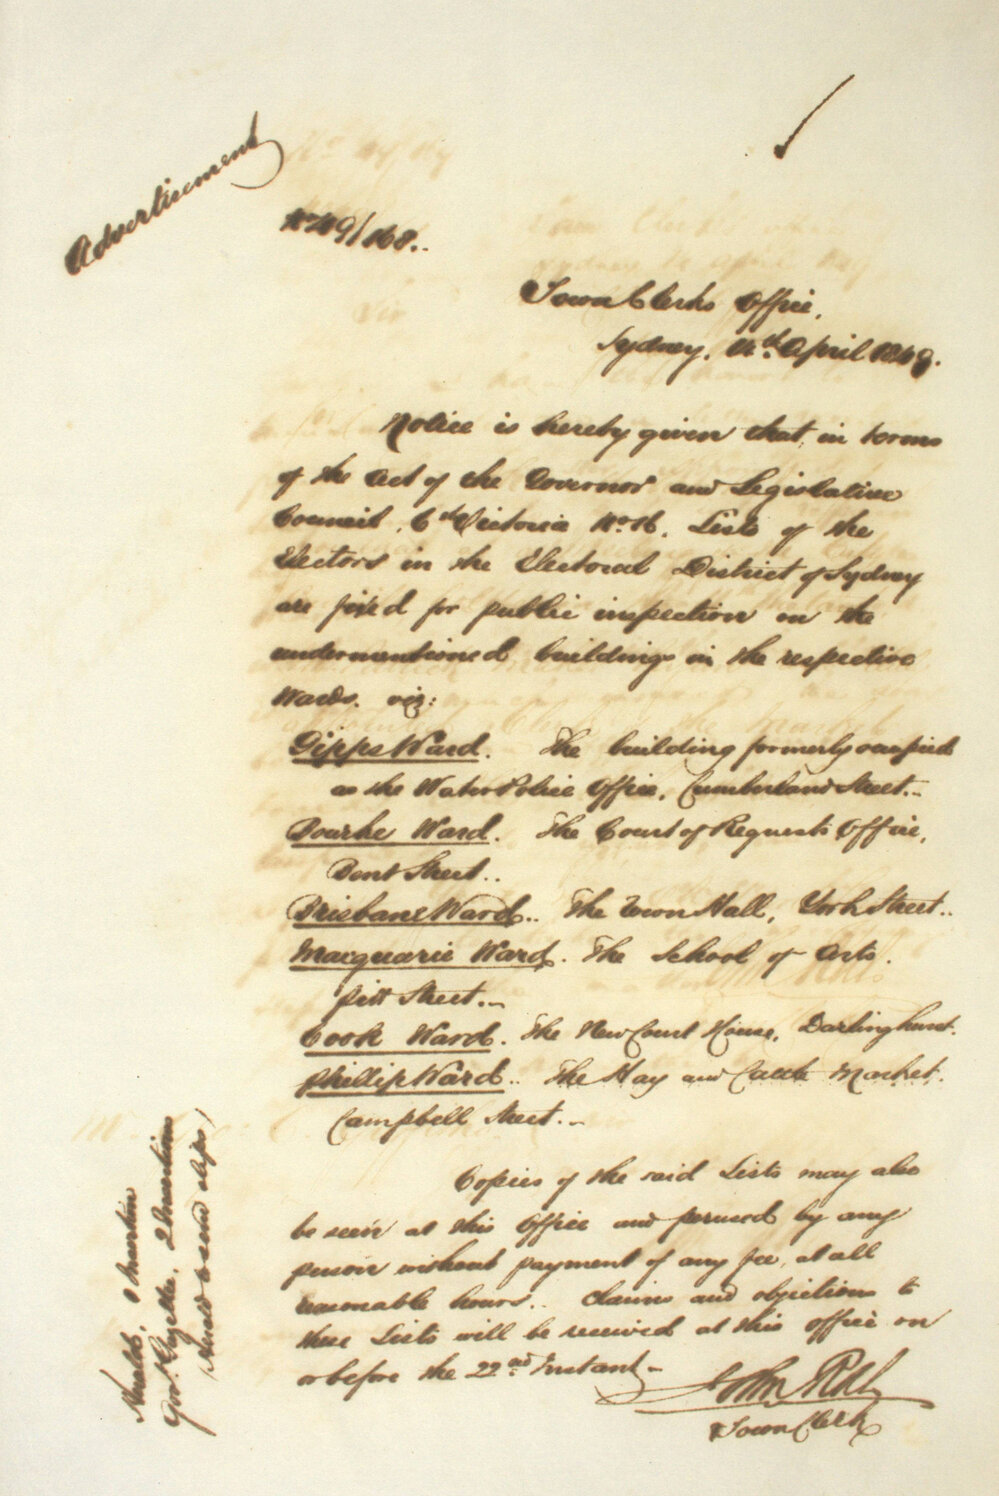 Advertisement
No 49/168..
Town Clerks Office,
Sydney, 14th April 1849.
Notice is hereby given that, in terms
of the Act of the Governor and Legislative
Council, 6th Victoria No 16, Lists of the
Electors in the Electoral District of Sydney
are fixed for public inspection on the
undermentioned buildings in the respective
Wards. viz:
Gipps Ward. The building formerly occupied
as the Water Police Office, Cumberland Street..
Bourke Ward. The Court of Requests Office,
Bent Street..
Brisbane Ward.. The Town Hall, York Street..
Macquarie Ward. The School of Arts.
Pitt Street..
Cook Ward. The New Court House, Darlinghurst.
Phillip Ward.. The Hay and Cattle Market.
Campbell Street..
Copies of the said Lists may also
be seen at this Office and perused by any
person without payment of any fee, at all
reasonable hours.. Claims and objections to
these Lists will be received at this office on
or before the 22nd Instant
John
Town Clerk
Herald, insertion
Govt Gazette, 2 Insertions
Herald to send slips